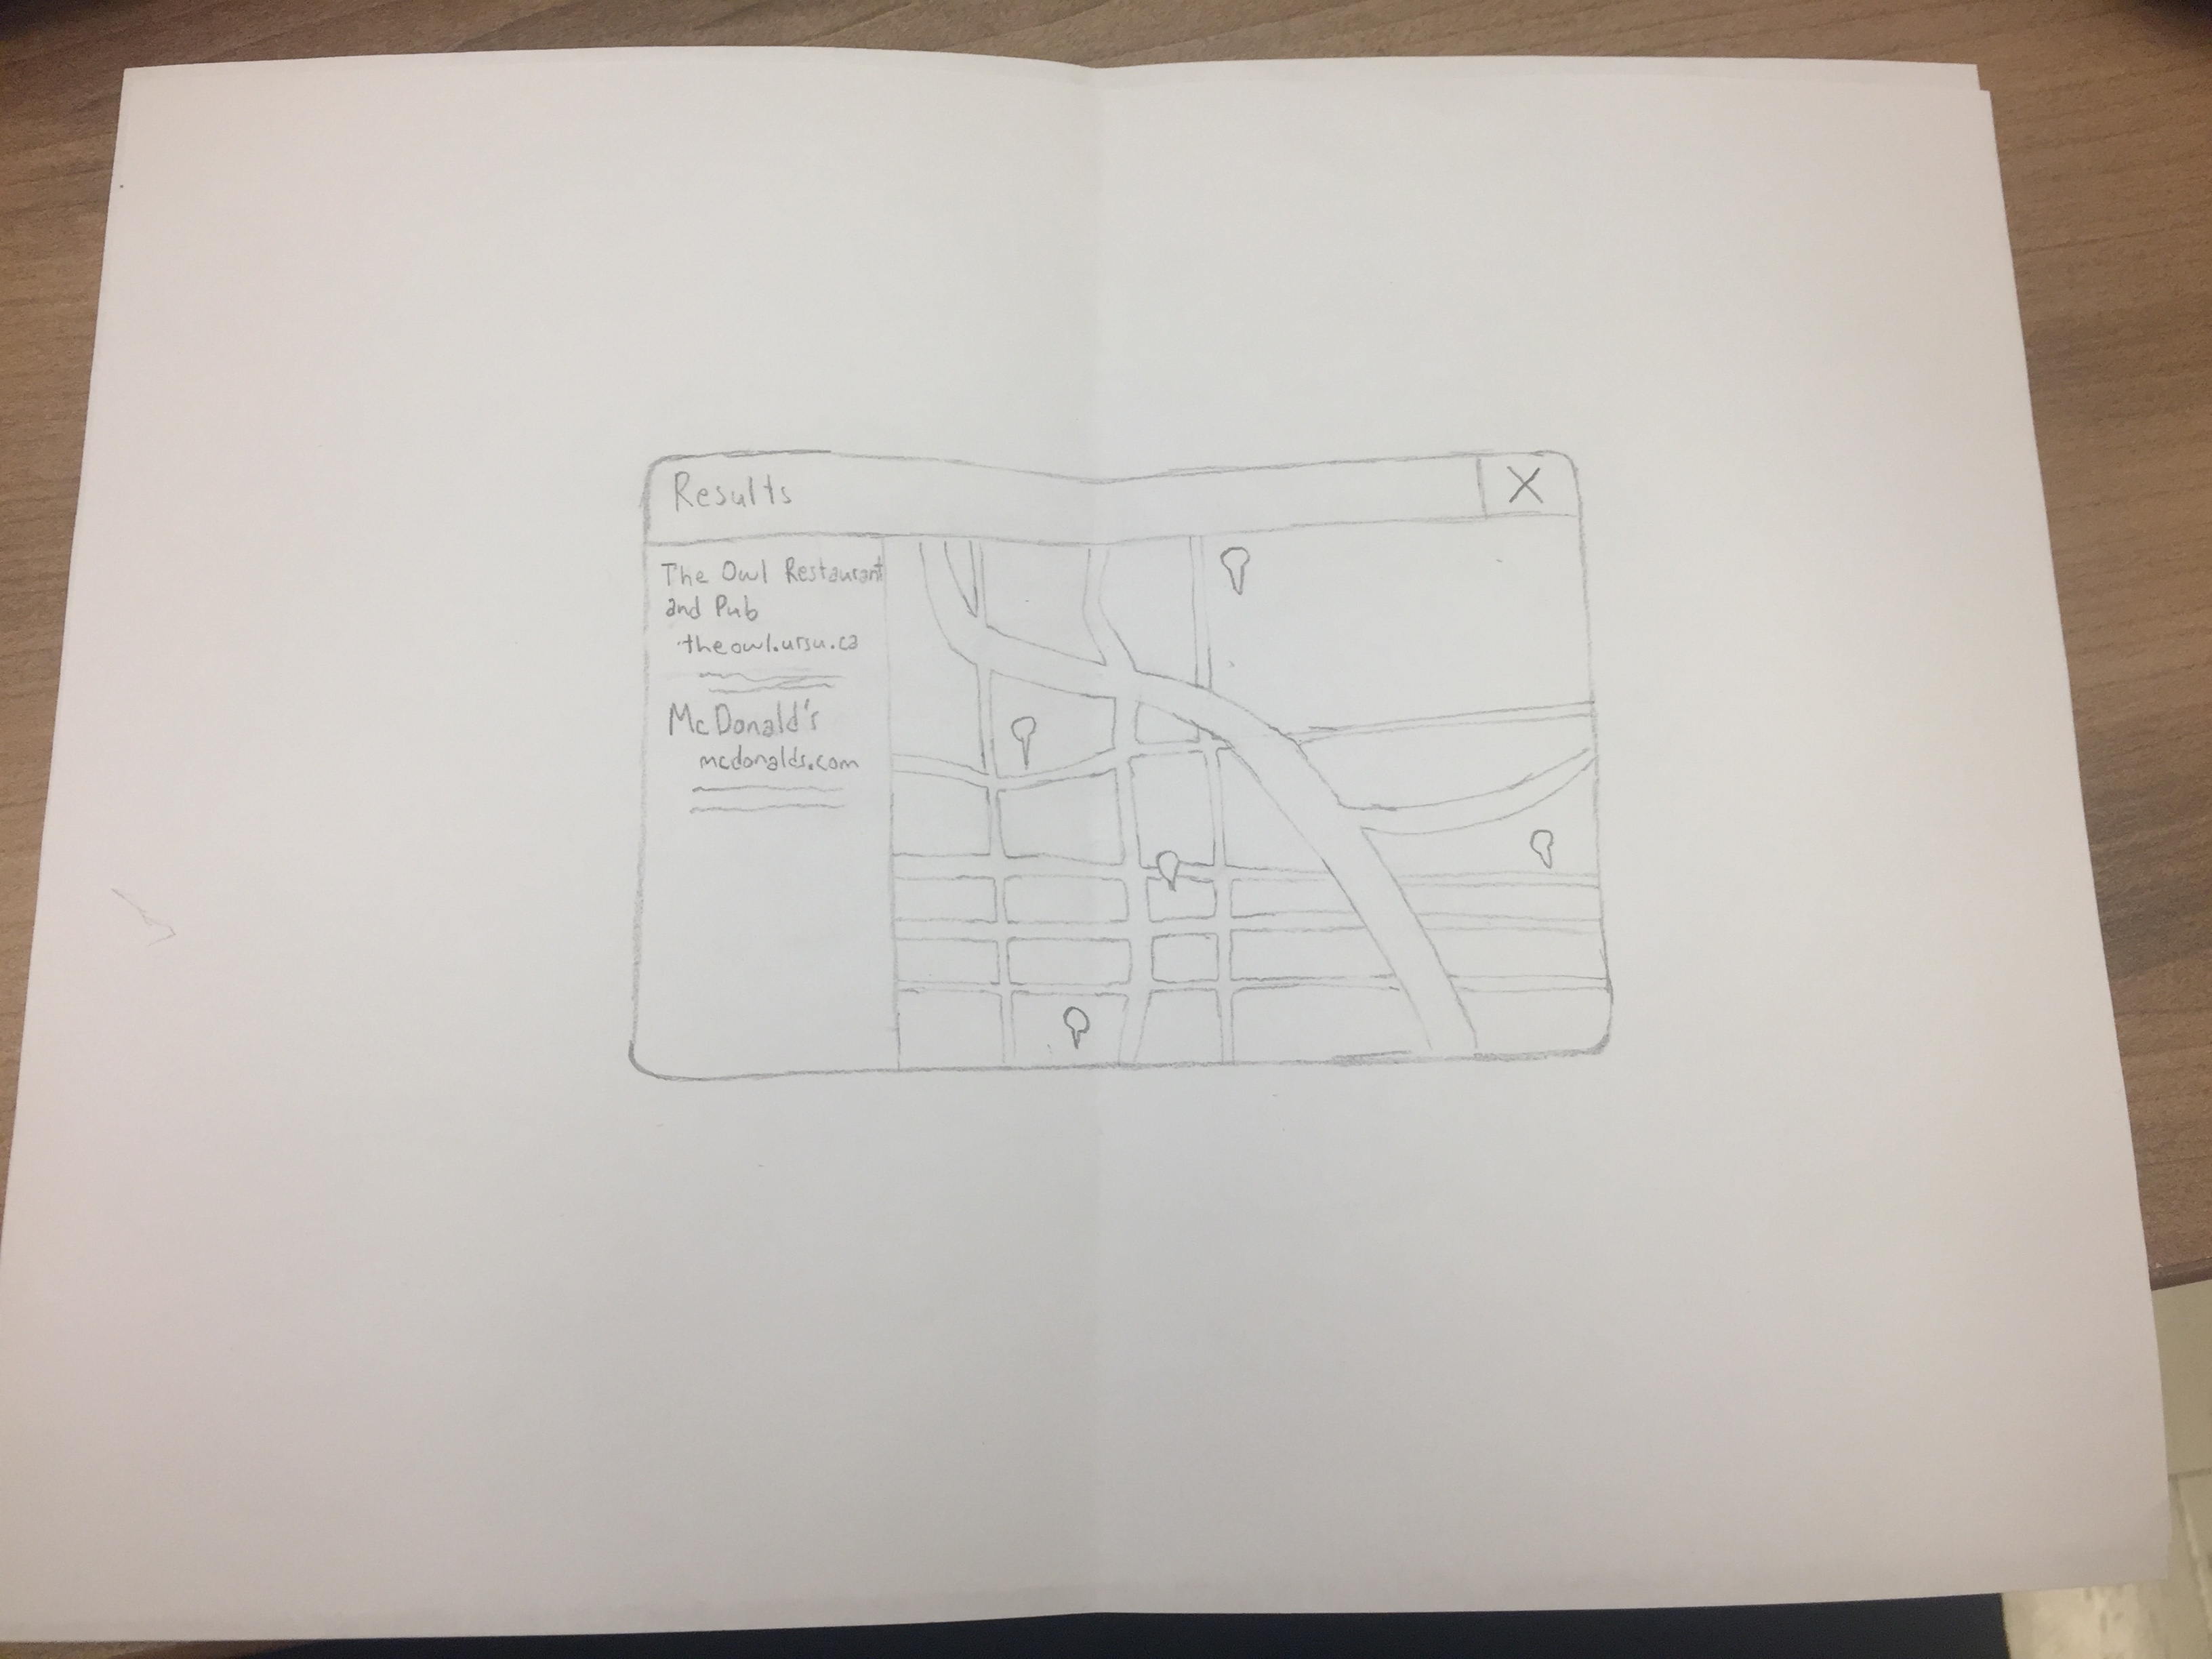 Results
X
The Owl Restaurant
and Pub
theowl.ursu.ca
McDonald's
mcdonalds.com